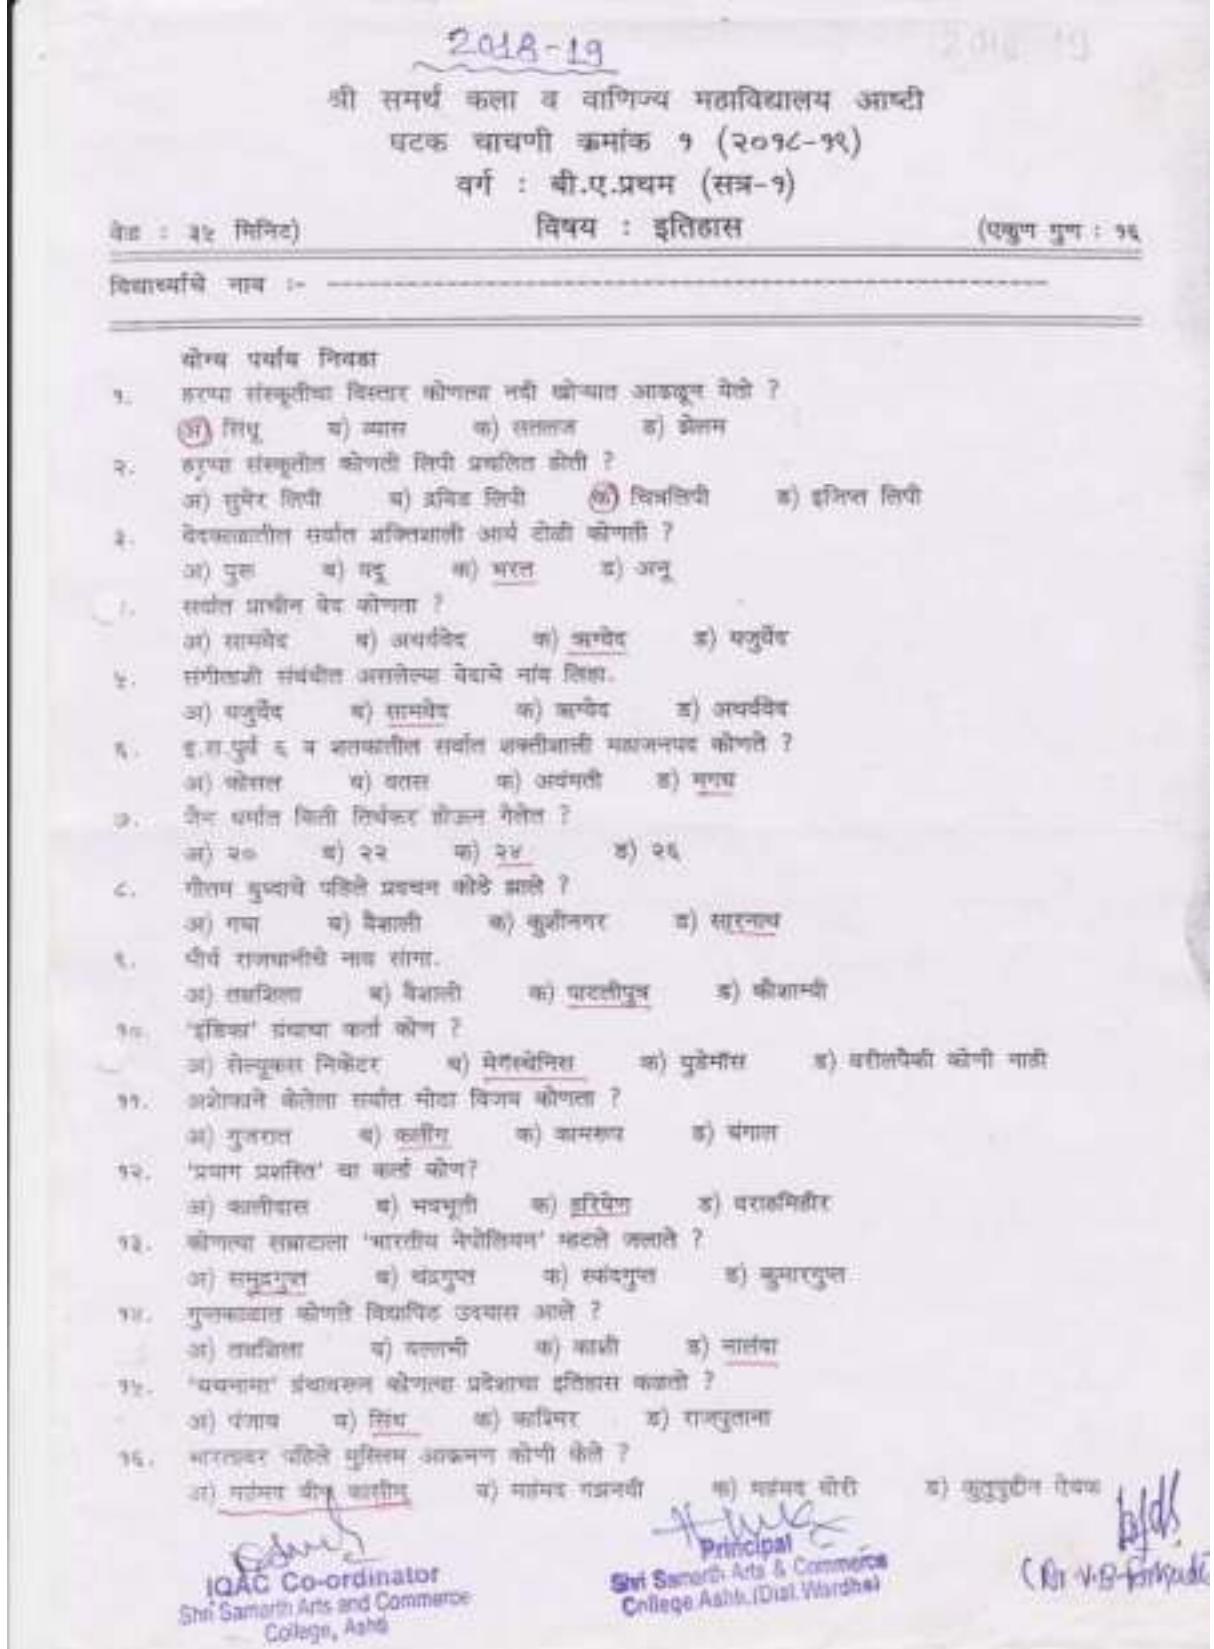 2018-19
श्री समर्थ कला व वाणिज्य महाविद्यालय आष्टी
घटक चाचणी क्रमांक १ (२०१८-१९)
वर्ग : बी.ए.प्रथम (सत्र-१)
वेळ : ३५ मिनिट) विषय : इतिहास (एकुण गुण : १६
विद्यार्थ्याचे नाव :-
योग्य पर्याय निवडा
१. हरप्पा संस्कृतीचा विस्तार कोणत्या नदी खोऱ्यात आढळून येतो ?
अ) सिंधू ब) व्यास क) सतलज ड) झेलम
२. हरप्पा संस्कृतीत कोणती लिपी प्रचलित होती ?
अ) सुमेर लिपी ब) द्रविड लिपी क) चित्रलिपी ड) इजिप्त लिपी
३. वेदकाळातील सर्वात शक्तिशाली आर्य टोळी कोणती ?
अ) पुरू ब) यदू क) भरत ड) अनू
सर्वात प्राचीन वेद कोणता ?
अ) सामवेद ब) अथर्ववेद क) ऋग्वेद ड) यजुर्वेद
५. संगीताशी संबंधीत असलेल्या वेदाचे नांव लिहा.
अ) यजुर्वेद ब) सामवेद क) ऋग्वेद ड) अथर्ववेद
६. इ.स.पुर्व ६ व शतकातील सर्वात शक्तीशाली महाजनपद कोणते ?
अ) कोसल ब) वतस क) अवंमती ड) मगध
७. जैन धर्मात किती तिर्थकर होऊन गेलेत ?
अ) २० ब) २२ क) २४ ड) २६
८. गौतम बुध्दाचे पहिले प्रवचन कोठे झाले ?
अ) गया ब) वैशाली क) कुशीनगर ड) सारनाथ
९. मौर्य राजधानीचे नाव सांगा.
अ) तक्षशिला ब) वैशाली क) पाटलीपुत्र ड) कौशाम्बी
१०. 'इंडिका' ग्रंथाचा कर्ता कोण ?
अ) सेल्यूकस निकेटर ब) मेगॅस्थेनिस क) युडेमॉस ड) वरीलपैकी कोणी नाही
११. अशोकाने केलेला सर्वात मोठा विजय कोणता ?
अ) गुजरात ब) कलींग क) कामरूप ड) बंगाल
१२. 'प्रयाग प्रशस्ति' चा कर्ता कोण?
अ) कालीदास ब) भवभूती क) हरिषेण ड) वराहमिहीर
१३. कोणत्या सम्राटाला 'भारतीय नेपोलियन' म्हटले जलाते ?
अ) समुद्रगुप्त ब) चंद्रगुप्त क) स्कंदगुप्त ड) कुमारगुप्त
१४. गुप्तकाळात कोणते विद्यापिठ उदयास आले ?
अ) तक्षशिला ब) वल्लभी क) काशी ड) नालंदा
१५. 'चचनामा' ग्रंथावरून कोणत्या प्रदेशाचा इतिहास कळतो ?
अ) पंजाब ब) सिंध क) काश्मिर ड) राजपुताना
१६. भारतावर पहिले मुस्लिम आक्रमण कोणी केले ?
अ) महंमद बीन कासीम ब) माहंमद गझनवी क) महंमद घोरी ड) कुतुबुद्दीन ऐबक
IQAC Co-ordinator
Shri Samarth Arts and Commerce
College, Ashti
Principal
Shri Samarth Arts & Commerce
College Ashti.(Dist.Wardha)